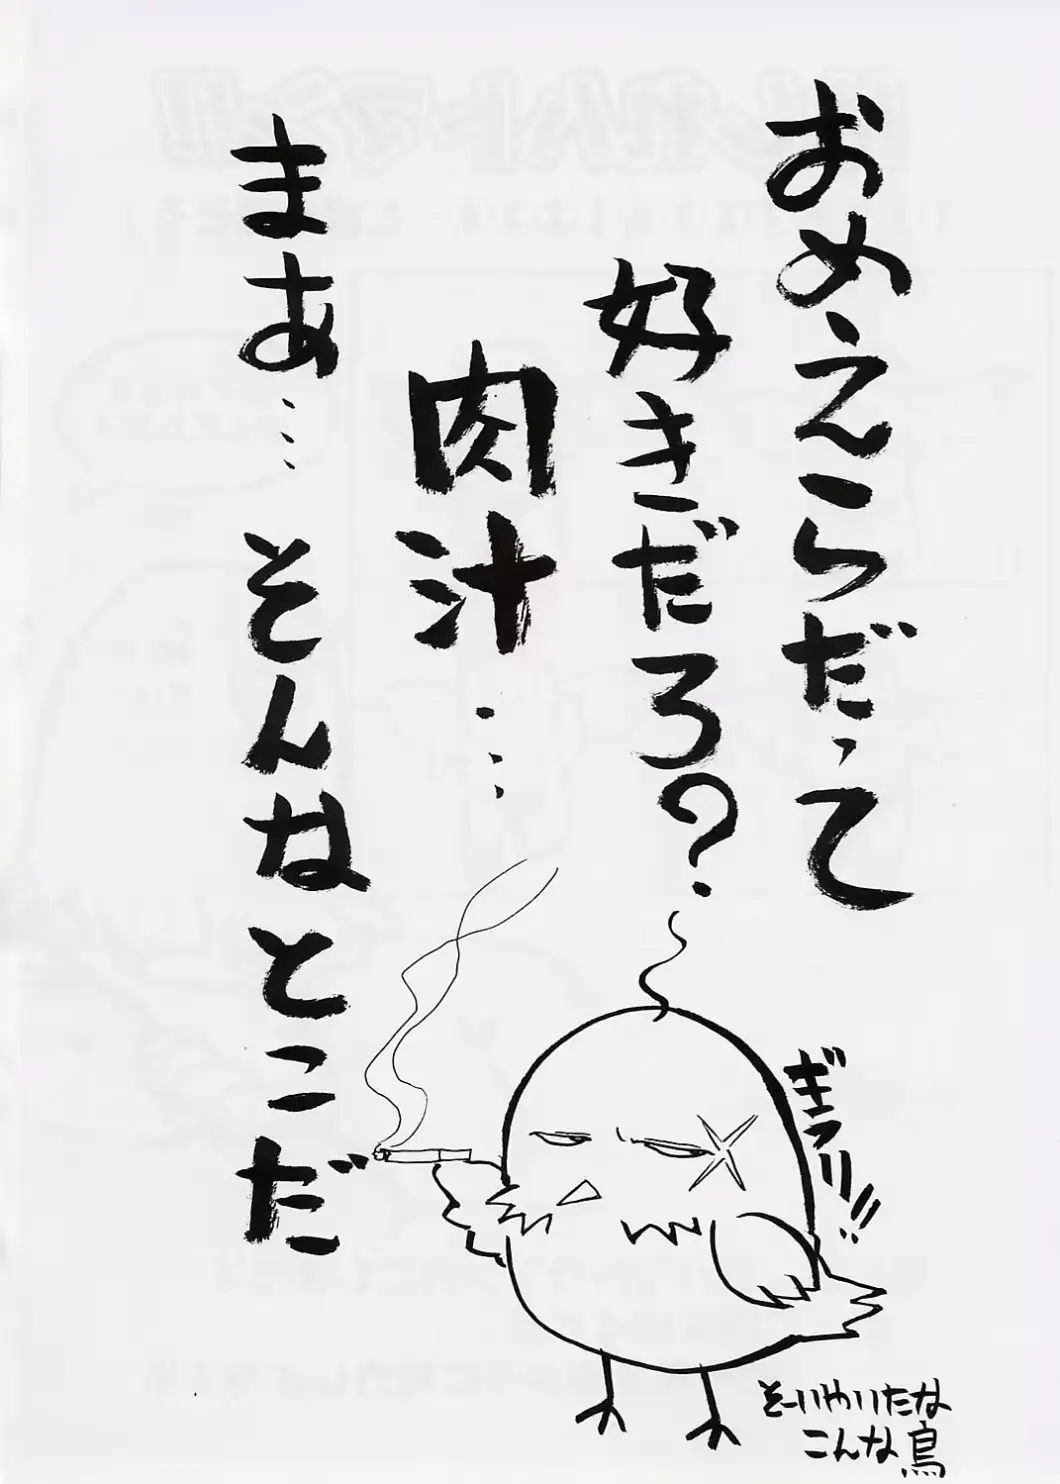 おめえらだって
好きだろ?
肉汁…
まぁ… そんなとこだ
ぎっリ!!
そーいやいたな
こんな鳥